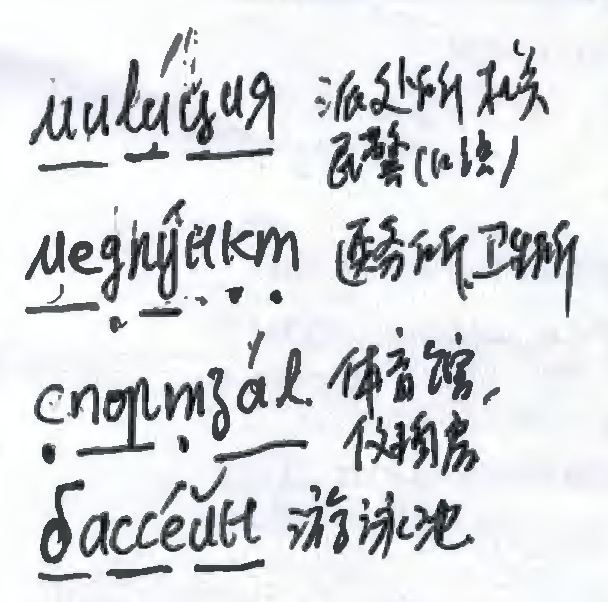 мили́ция 派处所 机关
民警(口读)
медпу́нкт 医务所.卫生所
спортза́л. 体育馆,
健身房
бассе́йн 游泳池.